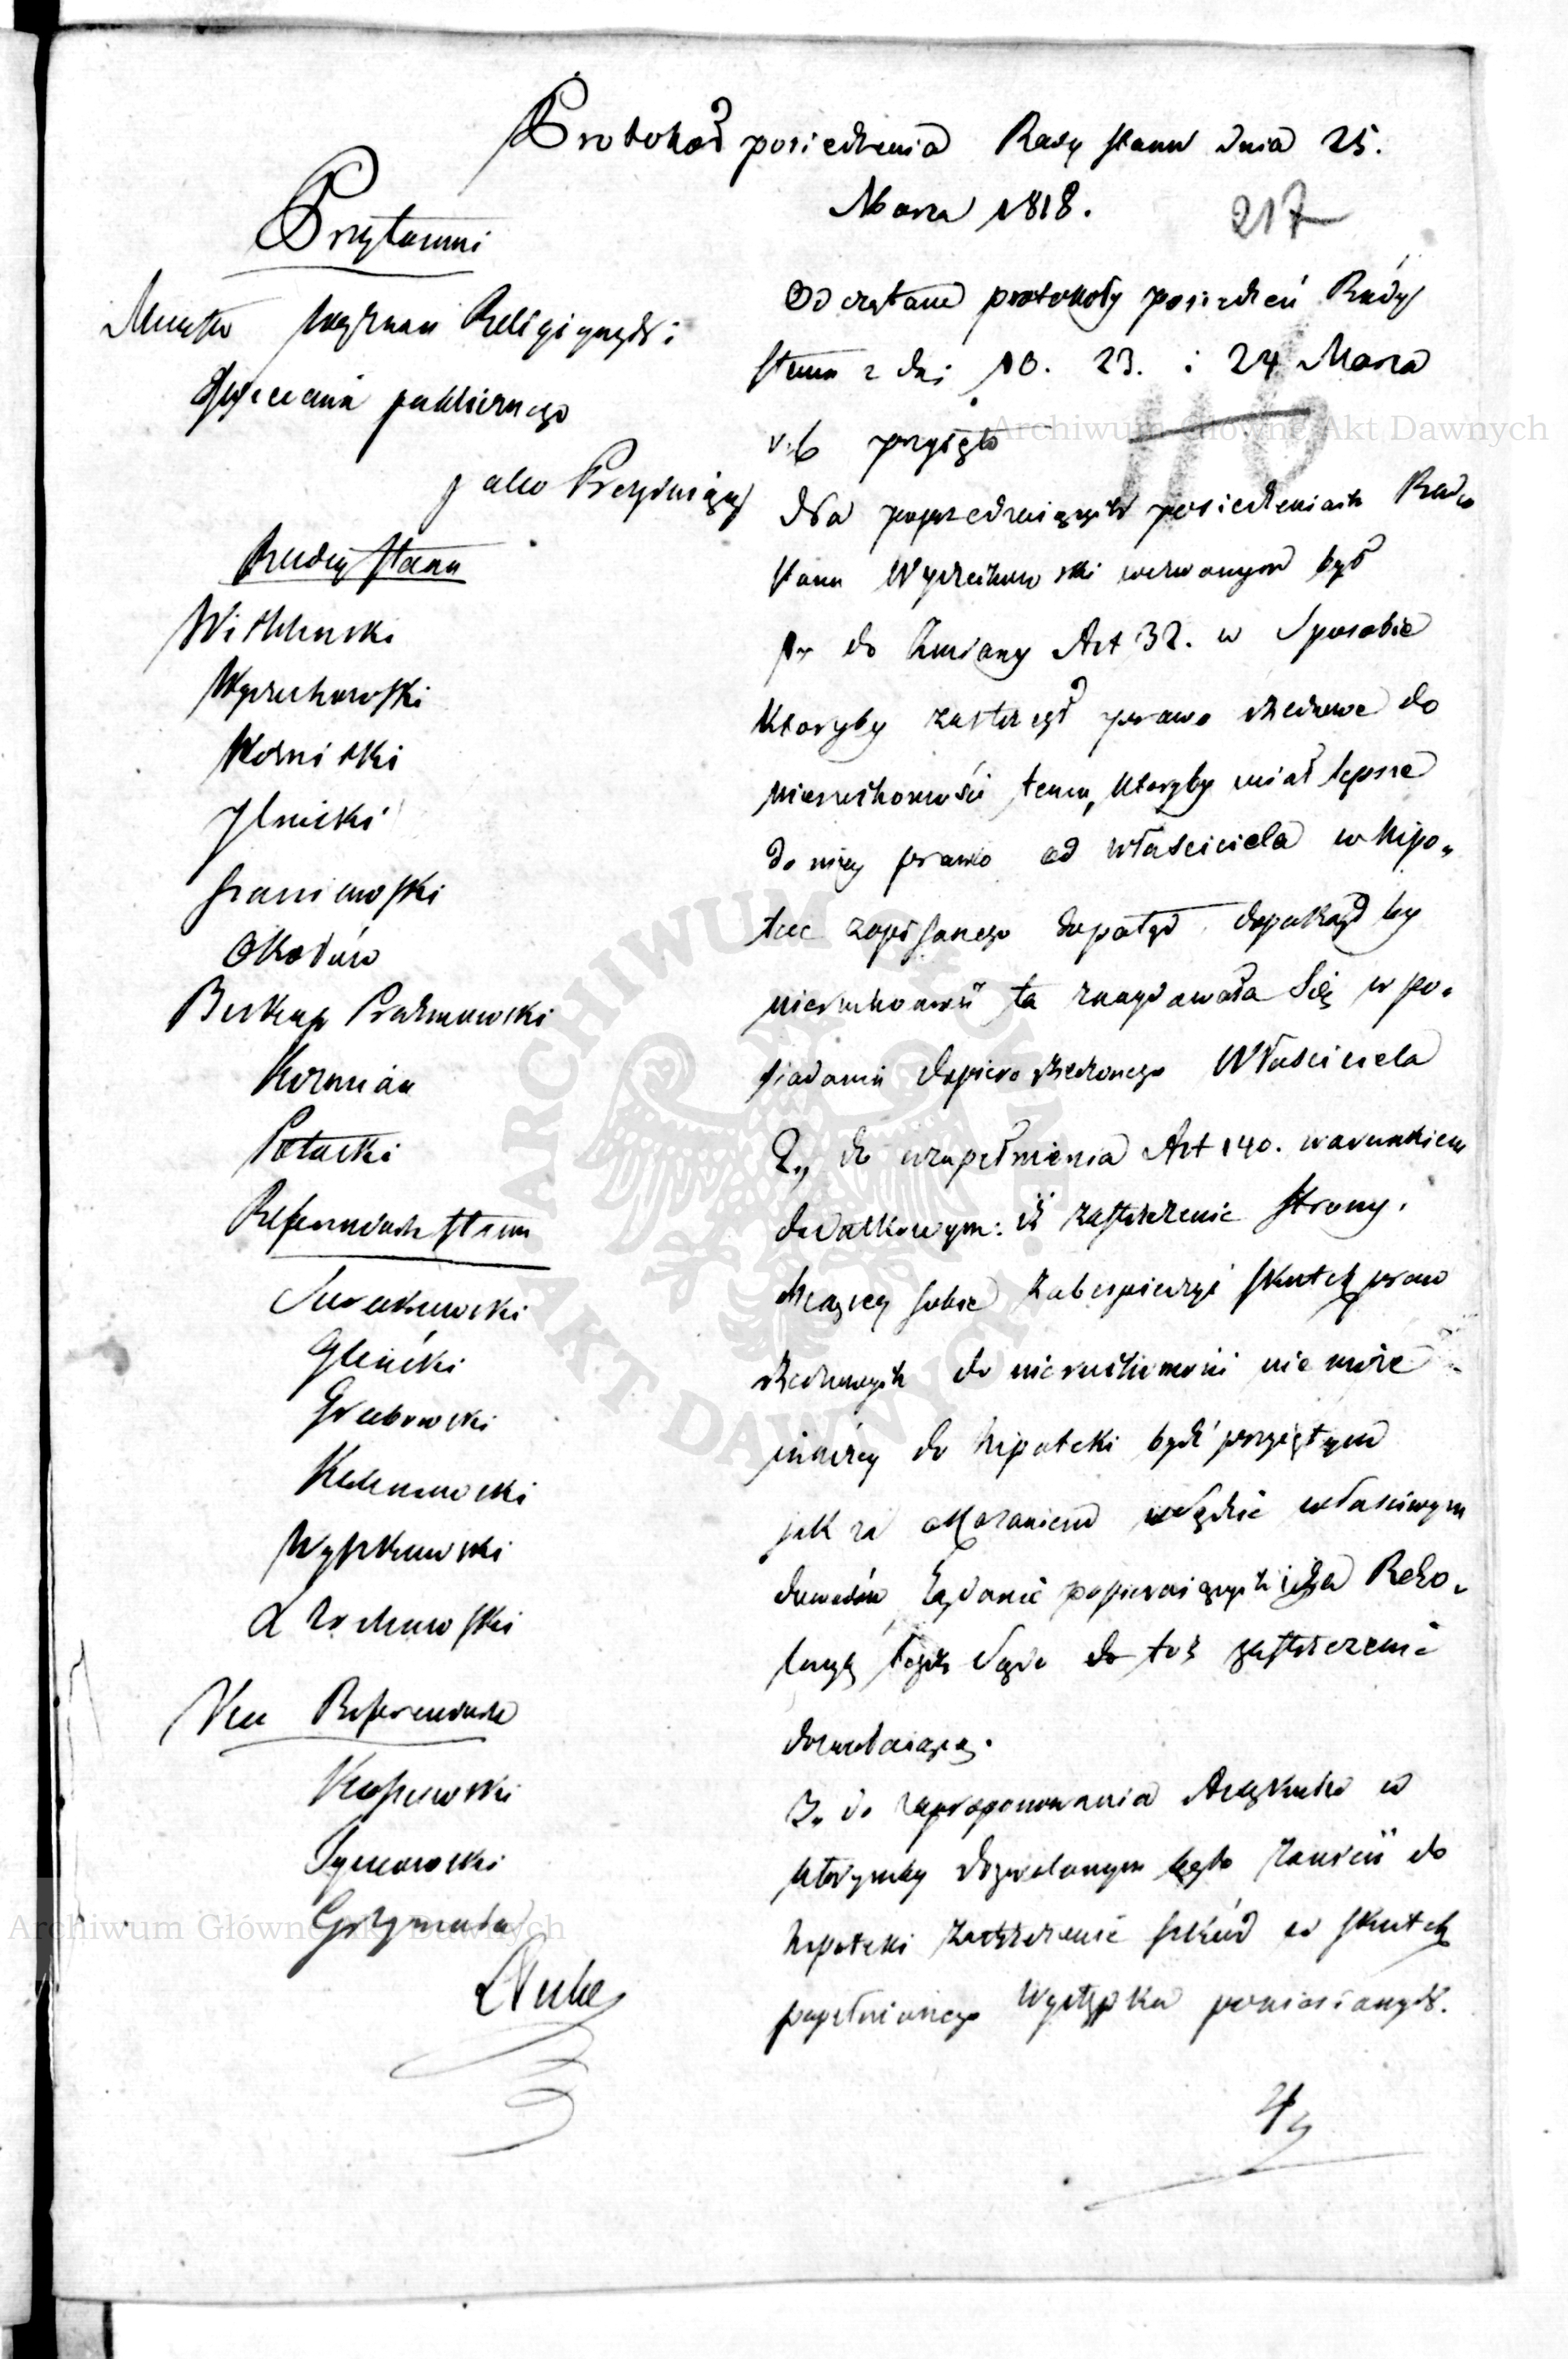 Protokoł posiedzenia Rady Stanu dnia 25.
Marca 1818.
217
Przytomni
Minister Wyznań Religijnych i
Oświecenia publicznego
jako Prezydujący
Radcy Stanu
Wichliński
Wyczechowski
Woźnicki
Jlnicki
Staniewski
Okołow
Biskup Prażmowski
Koźmian
Potocki
Referendarze Stanu
Surakowski
Gliński
Grabowski
Kalinowski
Wyszkowski
Lzochowski
Vice Referendarze
Kossowski
Tymowski
Grzymała
Odczytane protokoły posiedzeń Rady
Stanu z dni 10. 23. i 24 Marca
110
przyięto
Na poprzedzaiących posiedzeniach Radca
Stanu Wyczechowski wezwanym był
do zmiany Art 32. w Sposobie
któryby zastrzegł prawo rzeczowe do
nieruchomości temu, któryby miał lepsze
do niey prawo od właściciela w hipo„
tece zapisanego dopotąd dopokąd by
nieruchomość ta znaydowała się w po„
siadaniu dopiero rzeczonego Właściciela
2„ do uzupełnienia Art 140. warunkiem
dodatkowym: iż zastrzeżenie Strony,
chcącey sobie zabespieczyć skutek praw
rzeczowych do nieruchomości nie może
inaczey do hipoteki bydź przyiętym
jak za okazaniem w Sądzie właściwym
dowodów żądanie popieraiących i za Rezo„
lucyą tegoż Sądu do toż zastrzeżenie
dozwalaiącą.
3„ do zaproponowania Artykułu w
którymby dozwolonym było zanieść do
hipoteki zastrzeżenie szkód w skutek
popełnionego Występku poniesionych.
4„
Archiwum Główne Akt Dawnych
Archiwum Główne Akt Dawnych
ARCHIWUM GŁÓWNE AKT DAWNYCH